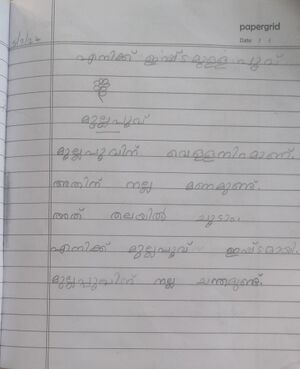 papergrid
Date: / /
എനിക്ക് ഇഷ്ടമുള്ള പൂവ്
മുല്ലപൂവ്
മുല്ലപൂവിന് വെള്ളനിറമാണ്.
അതിന് നല്ല മണമുണ്ട്.
അത് തലയിൽ ചൂടാം.
എനിക്ക് മുല്ലപൂവ് ഇഷ്ടമായി.
മുല്ലപൂവിന് നല്ല ചന്തമുണ്ട്.